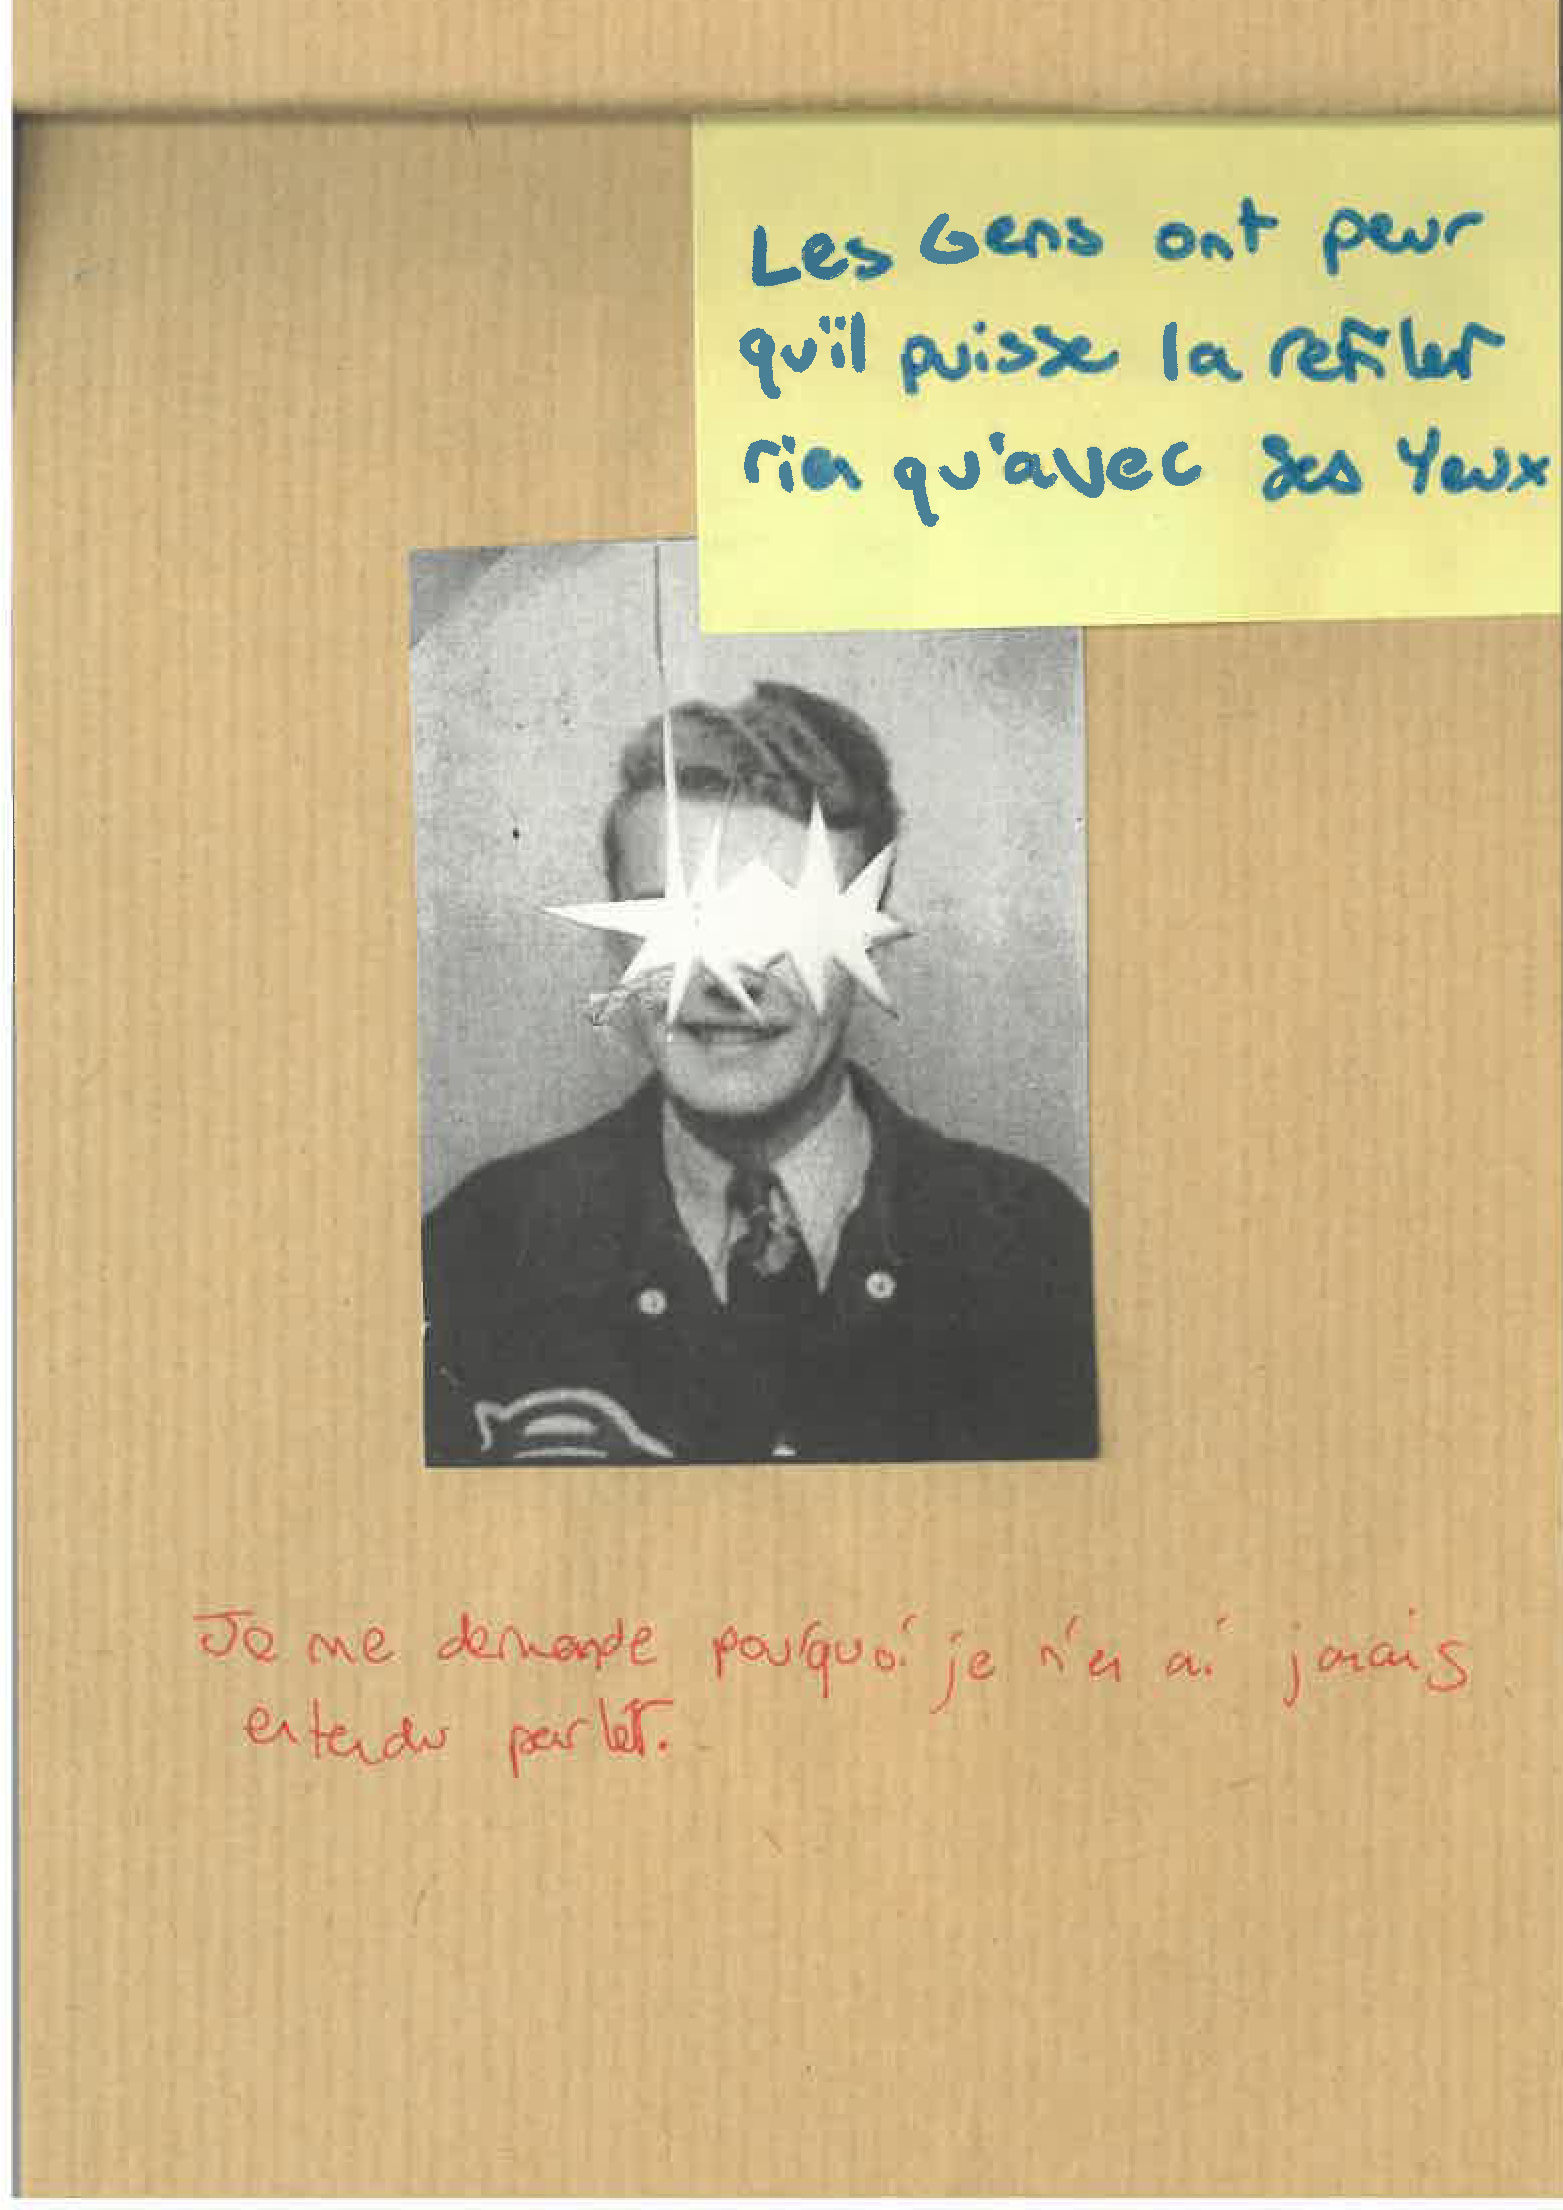 Les Gens ont peur
qu'il puisse la refiler
rien qu'avec ses Yeux
Je me demande pourquoi je n'en ai jamais
entendu parler.